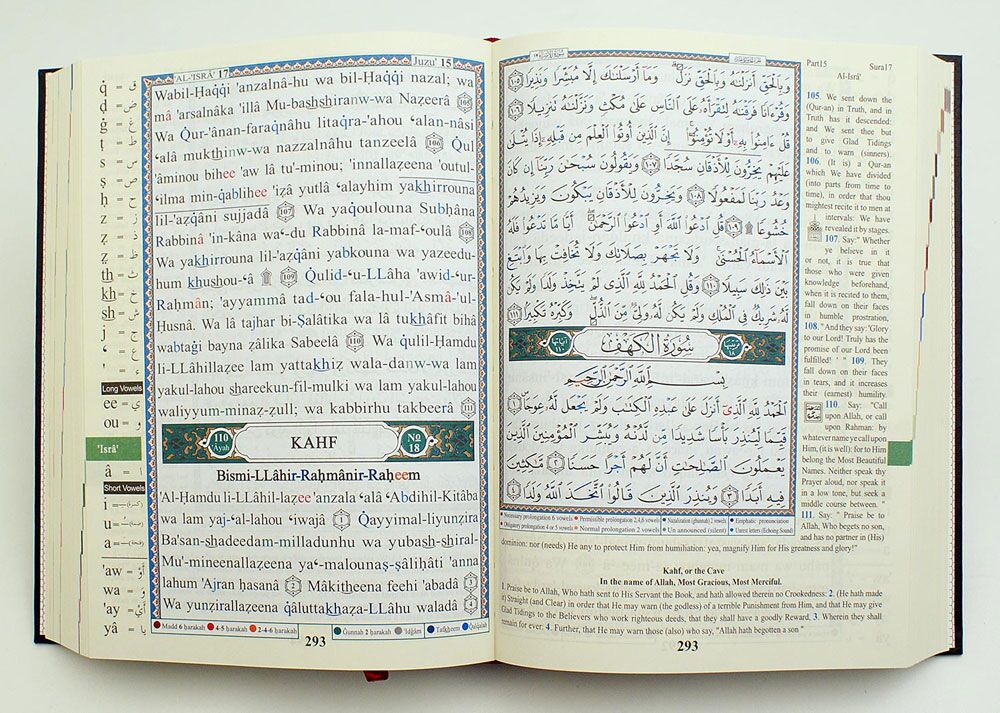 'AL-'ISRÂ' 17
Juzu' 15
Wabil-Haqqi 'anzalnâhu wa bil-Haqqi nazal; wa
mâ 'arsalnâka 'illâ Mu-bashshiranw-wa Nazeerâ 105
Wa Qur-'ânan-faraqnâhu litaqra-'ahou ‘alan-nâsi
‘alâ mukthinw-wa nazzalnâhu tanzeelâ 106 Qul
'âminou bihee 'aw lâ tu'-minou; 'innallazeena 'outul-
‘ilma min-qablihee 'izâ yutlâ ‘alayhim yakhirrouna
lil-'azqâni sujjadâ 107 Wa yaqoulouna Subhâna
Rabbinâ 'in-kâna wa‘-du Rabbinâ la-maf-‘oulâ 108
Wa yakhirrouna lil-'azqâni yabkouna wa yazeedu-
hum khushou-‘â ۩ 109 Qulid-‘u-LLâha 'awid-‘ur-
Rahmân; 'ayyammâ tad-‘ou fala-hul-'Asmâ-'ul-
Husnâ. Wa lâ tajhar bi-Salâtika wa lâ tukhâfit bihâ
wabtaġi bayna zâlika Sabeelâ 110 Wa qulil-Hamdu
li-LLâhillazee lam yattakhiz wala-danw-wa lam
yakul-lahou shareekun-fil-mulki wa lam yakul-lahou
waliyyum-minaz-zull; wa kabbirhu takbeerâ 111
110 'Ayah
KAHF
No 18
Bismi-LLâhir-Rahmânir-Raheem
'Al-Hamdu li-LLâhil-lazee 'anzala ‘alâ ‘Abdihil-Kitâba
wa lam yaj-‘al-lahou ‘iwajâ 1 Qayyimal-liyunzira
Ba'san-shadeedam-milladunhu wa yubash-shiral-
Mu'-mineenallazeena ya‘-malounas-sâlihâti 'anna
lahum 'Ajran hasanâ 2 Mâkitheena feehi 'abadâ 3
Wa yunzirallazeena qâluttakhaza-LLâhu waladâ 4
Madd 6 harakah 4-5 harakah 2-4-6 harakah Ġunnah 2 harakah 'Idġâm Tafkheem Qalqalah
293
q̇ = ق
ḍ = ض
ġ = غ
ṭ = ط
s = س
ṣ = ص
ḥ = ح
z = ز
ẓ = ذ
ẓ = ظ
th = ث
kh = خ
sh = ش
j = ج
‘ = ع
' = ء
Long Vowels
ee = ي
ou = و
'Isrâ'
â = ا
Short Vowels
i =
u =
a =
'aw = أو
wa = و
'ay = أي
yâ = يا
وَبِالْحَقِّ أَنزَلْنَاهُ وَبِالْحَقِّ نَزَلَ وَمَا أَرْسَلْنَاكَ إِلَّا مُبَشِّرًا وَنَذِيرًا ١٠٥
وَقُرْءَانًا فَرَقْنَاهُ لِتَقْرَأَهُ عَلَى النَّاسِ عَلَى مُكْثٍ وَنَزَّلْنَاهُ تَنزِيلًا ١٠٦
قُلْ ءَامِنُوا بِهِ أَوْ لَا تُؤْمِنُوا إِنَّ الَّذِينَ أُوتُوا الْعِلْمَ مِن قَبْلِهِ إِذَا يُتْلَى
عَلَيْهِمْ يَخِرُّونَ لِلْأَذْقَانِ سُجَّدًا ١٠٧ وَيَقُولُونَ سُبْحَانَ رَبِّنَا إِن كَانَ
وَعْدُ رَبِّنَا لَمَفْعُولًا ١٠٨ وَيَخِرُّونَ لِلْأَذْقَانِ يَبْكُونَ وَيَزِيدُهُمْ
خُشُوعًا ۩ ١٠٩ قُلِ ادْعُوا اللَّهَ أَوِ ادْعُوا الرَّحْمَٰنَ أَيًّا مَّا تَدْعُوا فَلَهُ
الْأَسْمَاءُ الْحُسْنَى وَلَا تَجْهَرْ بِصَلَاتِكَ وَلَا تُخَافِتْ بِهَا وَابْتَغِ
بَيْنَ ذَٰلِكَ سَبِيلًا ١١٠ وَقُلِ الْحَمْدُ لِلَّهِ الَّذِي لَمْ يَتَّخِذْ وَلَدًا وَلَمْ يَكُن
لَّهُ شَرِيكٌ فِي الْمُلْكِ وَلَمْ يَكُن لَّهُ وَلِيٌّ مِّنَ الذُّلِّ وَكَبِّرْهُ تَكْبِيرًا ١١١
ترتيبها ١٨
سُورَةُ الْكَهْفِ
آياتها ١١٠
بِسْمِ اللَّهِ الرَّحْمَٰنِ الرَّحِيمِ
الْحَمْدُ لِلَّهِ الَّذِي أَنزَلَ عَلَى عَبْدِهِ الْكِتَابَ وَلَمْ يَجْعَل لَّهُ عِوَجًا ١
قَيِّمًا لِّيُنذِرَ بَأْسًا شَدِيدًا مِّن لَّدُنْهُ وَيُبَشِّرَ الْمُؤْمِنِينَ الَّذِينَ
يَعْمَلُونَ الصَّالِحَاتِ أَنَّ لَهُمْ أَجْرًا حَسَنًا ٢ مَّاكِثِينَ
فِيهِ أَبَدًا ٣ وَيُنذِرَ الَّذِينَ قَالُوا اتَّخَذَ اللَّهُ وَلَدًا ٤
Necessary prolongation 6 vowels Permissible prolongation 2,4,6 vowels Nazalization (ghunnah) 2 vowels Emphatic pronunciation
Obligatory prolongation 4 or 5 vowels Normal prolongation 2 vowels Un announced (silent) Unrest letters (Echoing Sound)
Part15 Sura17
Al-Isrâ'
105. We sent down the
(Qur-an) in Truth, and in
Truth has it descended:
and We sent thee but
to give Glad Tidings
and to warn (sinners).
106. (It is) a Qur-an
which We have divided
(into parts from time to
time), in order that thou
mightest recite it to men at
intervals: We have
revealed it by stages.
107. Say:" Whether
ye believe in it
or not, it is true that
those who were given
knowledge beforehand,
when it is recited to them,
fall down on their faces
in humble prostration,
108. "And they say:'Glory
to our Lord! Truly has the
promise of our Lord been
fulfilled! ' " 109. They
fall down on their faces
in tears, and it increases
their (earnest) humility.
110. Say: "Call
upon Allah, or call
upon Rahman: by
whatever name ye call upon
Him, (it is well): for to Him
belong the Most Beautiful
Names. Neither speak thy
Prayer aloud, nor speak it
in a low tone, but seek a
middle course between. "
111. Say: " Praise be to
Allah, Who begets no son,
and has no partner in (His)
dominion: nor (needs) He any to protect Him from humiliation: yea, magnify Him for His greatness and glory!"
Kahf, or the Cave
In the name of Allah, Most Gracious, Most Merciful.
1. Praise be to Allah, Who hath sent to His Servant the Book, and hath allowed therein no Crookedness: 2. (He hath made
it) Straight (and Clear) in order that He may warn (the godless) of a terrible Punishment from Him, and that He may give
Glad Tidings to the Believers who work righteous deeds, that they shall have a goodly Reward, 3. Wherein they shall
remain for ever: 4. Further, that He may warn those (also) who say, "Allah hath begotten a son "
293